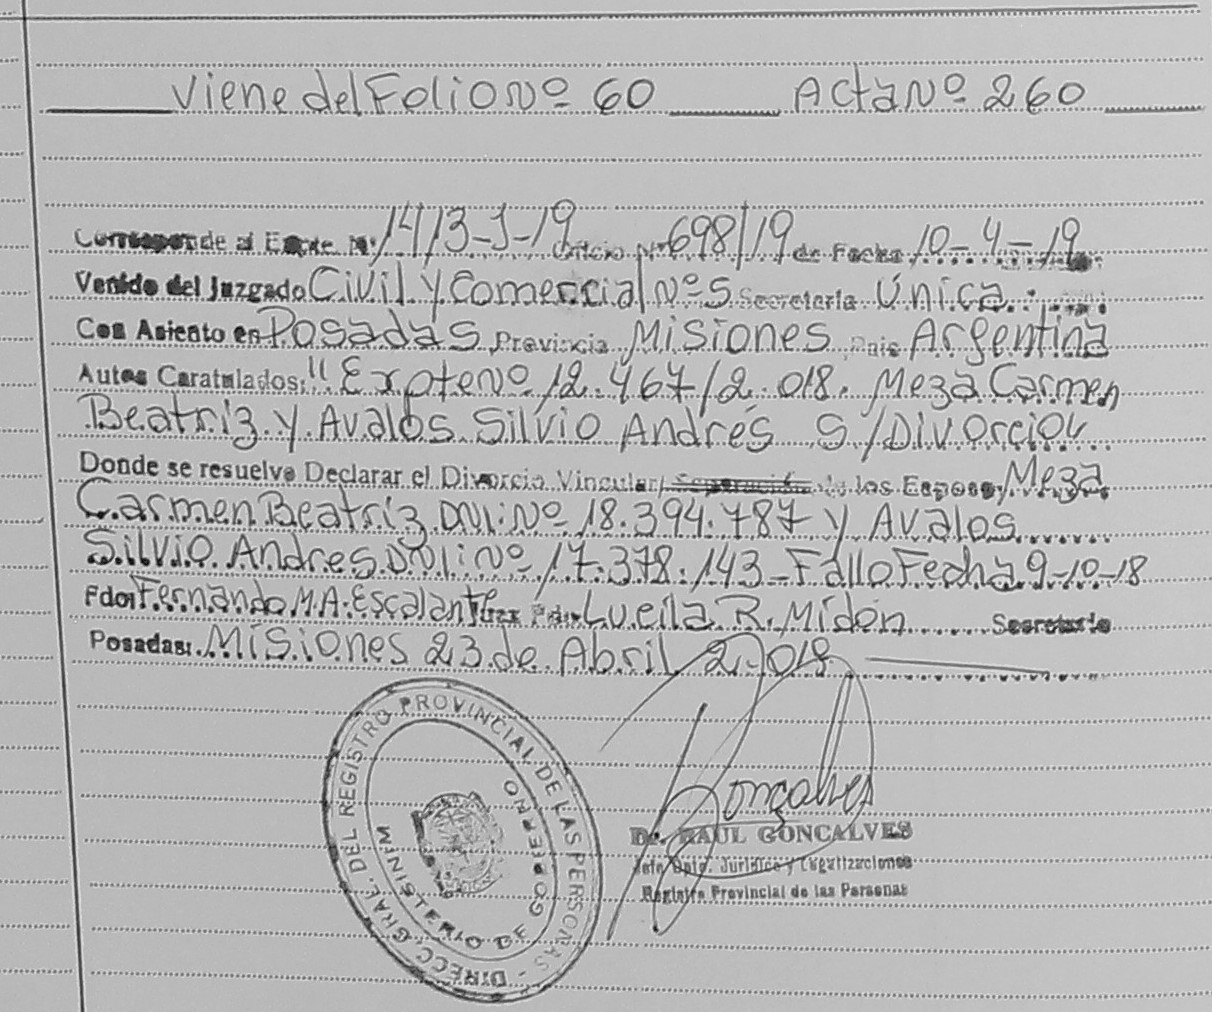 Viene del Folio Nº 60 Acta Nº 260
Corresponde al Expte. Nº 1413-J-19 Oficio Nº 698/19 de Fecha 10-4-19
Venido del Juzgado Civil y Comercial Nº 5 Secretaria Única
Con Asiento en Posadas Provincia Misiones Pais Argentina
Autos Caratulados: "Expte Nº 12.467/2.018. Meza Carmen
Beatriz y Avalos Silvio Andrés S/Divorcio
Donde se resuelve Declarar el Divorcio Vincular/ Separación de los Esposos Meza
Carmen Beatriz DNI: Nº 18.394.787 y Avalos
Silvio Andres DNI: Nº 17.378.143 - Fallo Fecha 9-10-18
Fdo: Fernando M.A. Escalante Juez Fdo: Lucila R. Midón Secretario
Posadas: Misiones 23 de Abril 2.018
DIRECC. GRAL. DEL REGISTRO PROVINCIAL DE LAS PERSONAS -
MINISTERIO DE GOBIERNO
Gonçalves
Dr. RAUL GONCALVES
Jefe Dpto. Jurídico y Legalizaciones
Registro Provincial de las Personas